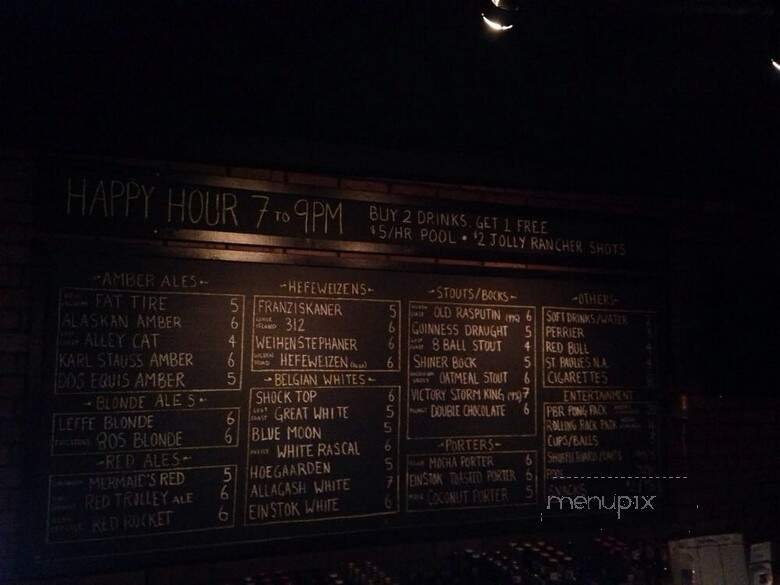 HAPPY HOUR 7 TO 9PM
BUY 2 DRINKS, GET 1 FREE
$5/HR POOL • $2 JOLLY RANCHER SHOTS
-AMBER ALES-
FAT TIRE 5
ALASKAN AMBER 6
ALLEY CAT 4
KARL STAUSS AMBER 6
DOS EQUIS AMBER 5
-BLONDE ALES-
LEFFE BLONDE 6
805 BLONDE 6
-RED ALES-
MERMAID'S RED 5
RED TROLLEY ALE 6
RED ROCKET 6
-HEFEWEIZENS-
FRANZISKANER 5
GOOSE ISLAND 312 6
WEIHENSTEPHANER 6
HEFEWEIZEN 6
-BELGIAN WHITES-
SHOCK TOP 6
LOST COAST GREAT WHITE 5
BLUE MOON 5
WHITE RASCAL 6
HOEGAARDEN 5
ALLAGASH WHITE 7
EINSTOK WHITE 6
-STOUTS/BOCKS-
OLD RASPUTIN 6
GUINNESS DRAUGHT 5
LOST COAST 8 BALL STOUT 4
SHINER BOCK 5
OATMEAL STOUT 6
VICTORY STORM KING 7
DOUBLE CHOCOLATE 6
-PORTERS-
MOCHA PORTER 6
EINSTOK TOASTED PORTER 6
COCONUT PORTER 5
-OTHERS-
SOFT DRINKS/WATER
PERRIER
RED BULL
ST PAULIES N.A.
CIGARETTES
ENTERTAINMENT
PBR PONG PACK
ROLLING ROCK PACK
CUPS/BALLS
POOL
menupix